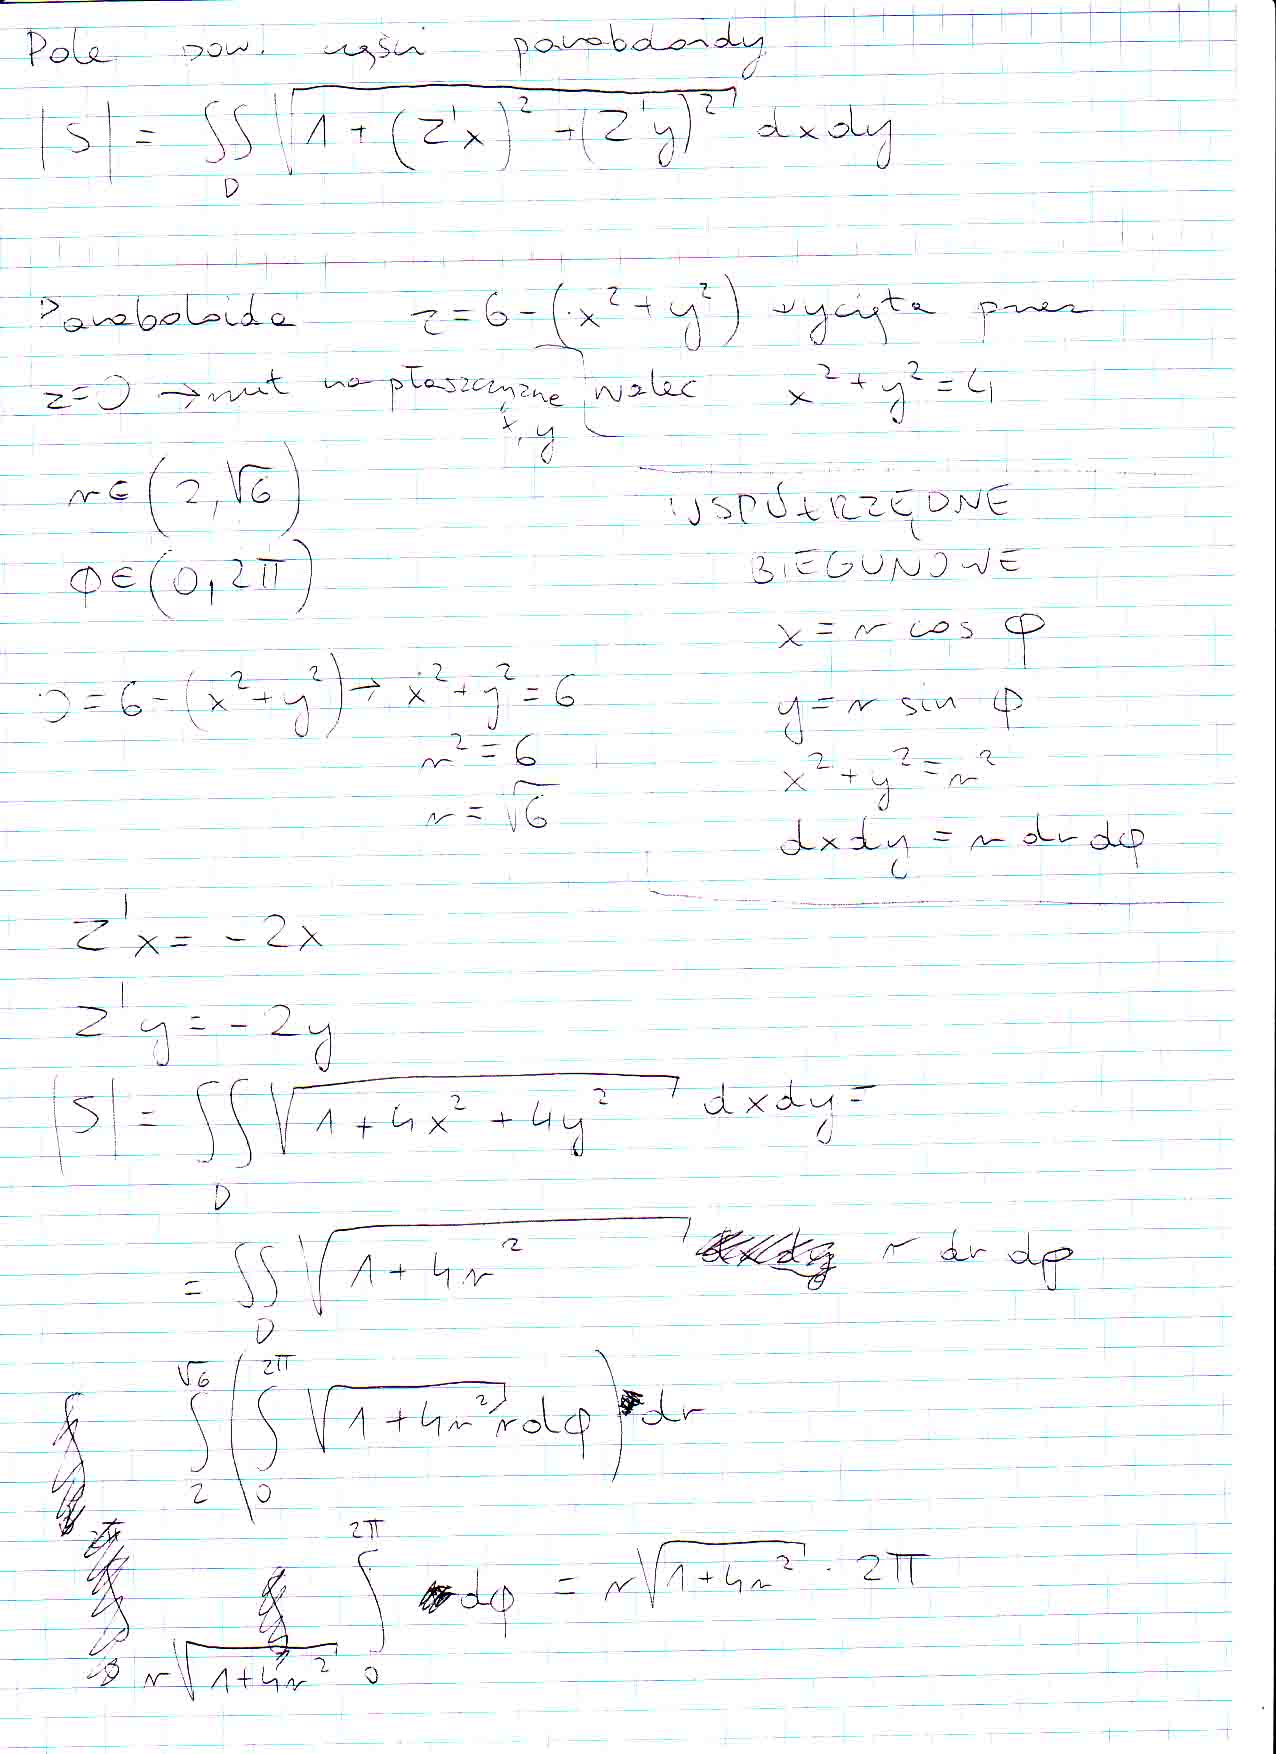 Pole pow. części paraboloidy
|S| = ∬ √(1 + (z'x)² + (z'y)²) dxdy
D
Paraboloida z = 6 - (x² + y²) wycięta przez
z=0 → rzut na płaszczyznę walec x² + y² = 4
x, y
r ∈ (2, √6)
φ ∈ (0, 2π)
WSPÓŁRZĘDNE
BIEGUNOWE
x = r cos φ
y = r sin φ
x² + y² = r²
dxdy = r dr dφ
0 = 6 - (x² + y²) → x² + y² = 6
r² = 6
r = √6
z'x = -2x
z'y = -2y
|S| = ∬ √(1 + 4x² + 4y²) dxdy =
D
= ∬ √(1 + 4r²) r dr dφ
D
√6 2π
∫ ( ∫ √(1 + 4r²) r dφ ) dr
2 0
2π
r√(1 + 4r²) ∫ dφ = r√(1 + 4r²) · 2π
0